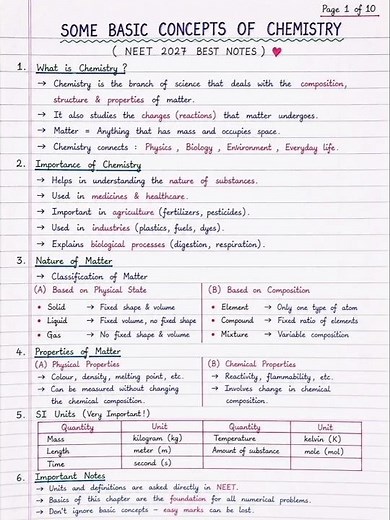 Page 1 of 10
SOME BASIC CONCEPTS OF CHEMISTRY
( NEET 2027 BEST NOTES ) ♥
1. What is Chemistry ?
→ Chemistry is the branch of science that deals with the composition,
structure & properties of matter.
→ It also studies the changes (reactions) that matter undergoes.
→ Matter = Anything that has mass and occupies space.
→ Chemistry connects : Physics , Biology , Environment , Everyday life.
2. Importance of Chemistry
→ Helps in understanding the nature of substances.
→ Used in medicines & healthcare.
→ Important in agriculture (fertilizers, pesticides).
→ Used in industries (plastics, fuels, dyes).
→ Explains biological processes (digestion, respiration).
3. Nature of Matter
→ Classification of Matter
(A) Based on Physical State
• Solid → Fixed shape & volume
• Liquid → Fixed volume, no fixed shape
• Gas → No fixed shape & volume
(B) Based on Composition
• Element → Only one type of atom
• Compound → Fixed ratio of elements
• Mixture → Variable composition
4. Properties of Matter
(A) Physical Properties
→ Colour, density, melting point, etc.
→ Can be measured without changing
the chemical composition.
(B) Chemical Properties
→ Reactivity, flammability, etc.
→ Involves change in chemical
composition.
5. SI Units (Very Important!)
Quantity Unit Quantity Unit
Mass kilogram (kg) Temperature kelvin (K)
Length meter (m) Amount of substance mole (mol)
Time second (s)
6. Important Notes
→ Units and definitions are asked directly in NEET.
→ Basics of this chapter are the foundation for all numerical problems.
→ Don't ignore basic concepts – easy marks can be lost.